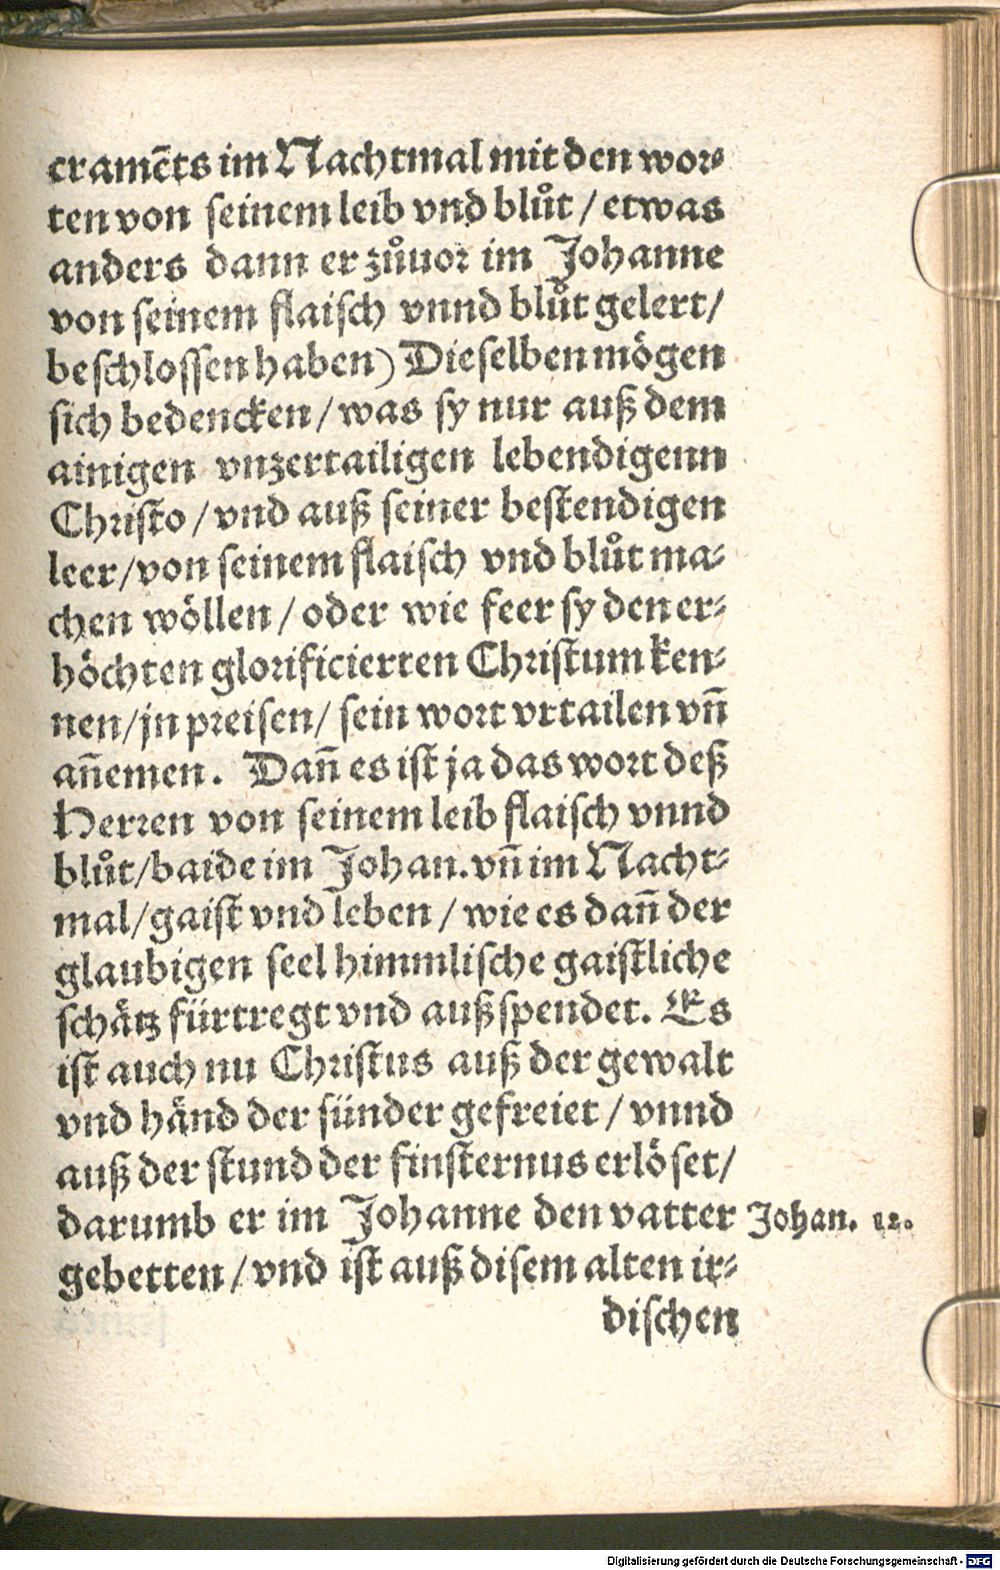 cramēts im Nachtmal mit den wor⸗
ten von seinem leib vnd blůt / etwas
anders dann er zůuor im Johanne
von seinem flaisch vnnd blůt gelert /
beschlossen haben) Dieselben mögen
sich bedencken / was sy nur auß dem
ainigen vnzertailigen lebendigenn
Christo / vnd auß seiner bestendigen
leer / von seinem flaisch vnd blůt ma⸗
chen wöllen / oder wie feer sy den er⸗
höchten glorificierten Christum ken⸗
nen / jn preisen / sein wort vrtailen vn̄
an̄emen. Dan̄ es ist ja das wort deß
Herren von seinem leib flaisch vnnd
blůt / baide im Johan. vn̄ im Nacht⸗
mal / gaist vnd leben / wie es dan̄ der
glaubigen seel himmlische gaistliche
schätz fürtregt vnd außspendet. Es
ist auch nu Christus auß der gewalt
vnd händ der sünder gefreiet / vnnd
auß der stund der finsternus erlöset /
darumb er im Johanne den vatter Johan. 12.
gebetten / vnd ist auß disem alten ir⸗
dischen
Digitalisierung gefördert durch die Deutsche Forschungsgemeinschaft - DFG